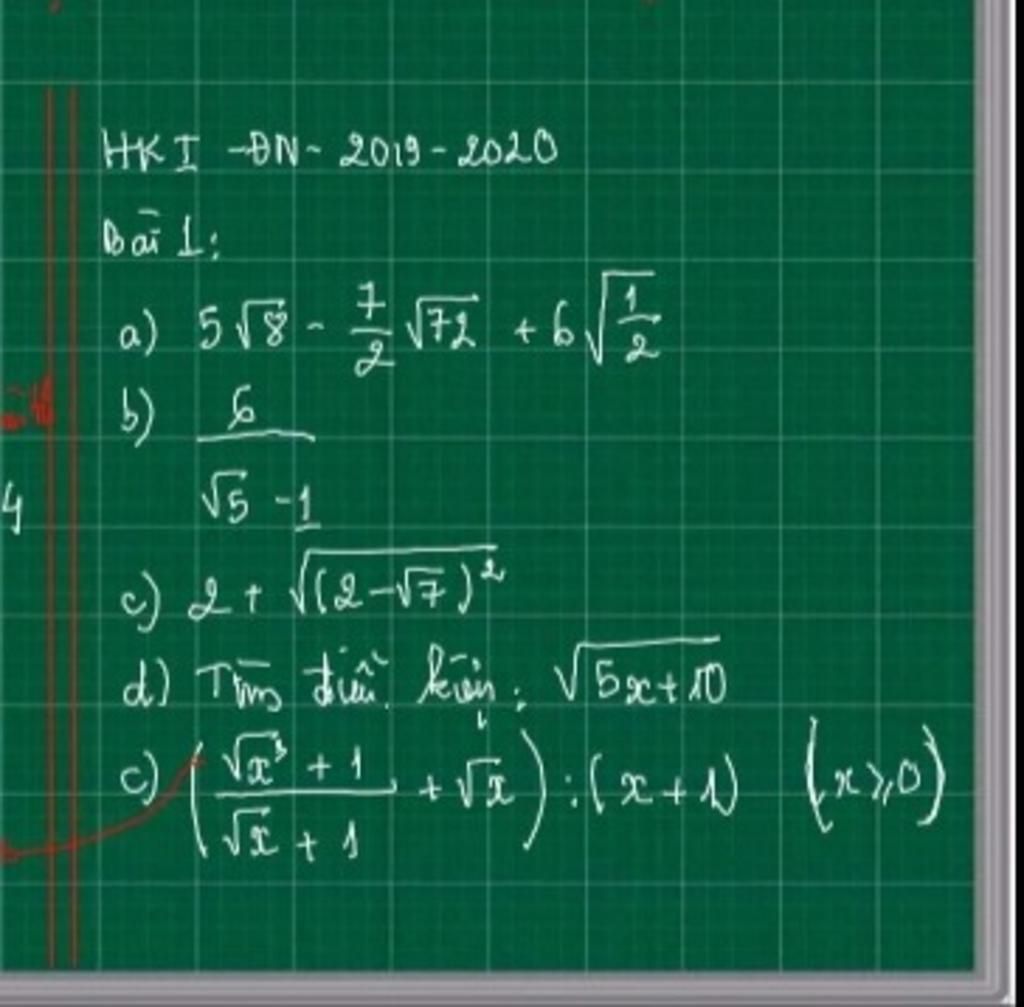 HK I - ĐN - 2019 - 2020
Bài 1:
a) 5√8 - 7/2 √72 + 6√(1/2)
b) 6/(√5 - 1)
c) 2 + √((2 - √7)²)
d) Tìm điều kiện: √(5x + 10)
c) ((√x³ + 1)/(√x + 1) + √x) : (x + 1) (x ≥ 0)
4